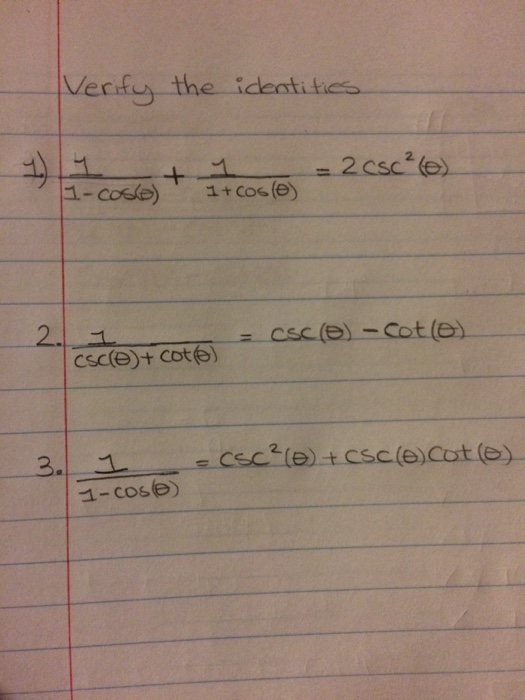 Verify the identities
1.) 1/(1-cos(θ)) + 1/(1+cos(θ)) = 2csc²(θ)
2. 1/(csc(θ)+cot(θ)) = csc(θ)-cot(θ)
3. 1/(1-cos(θ)) = csc²(θ)+csc(θ)cot(θ)